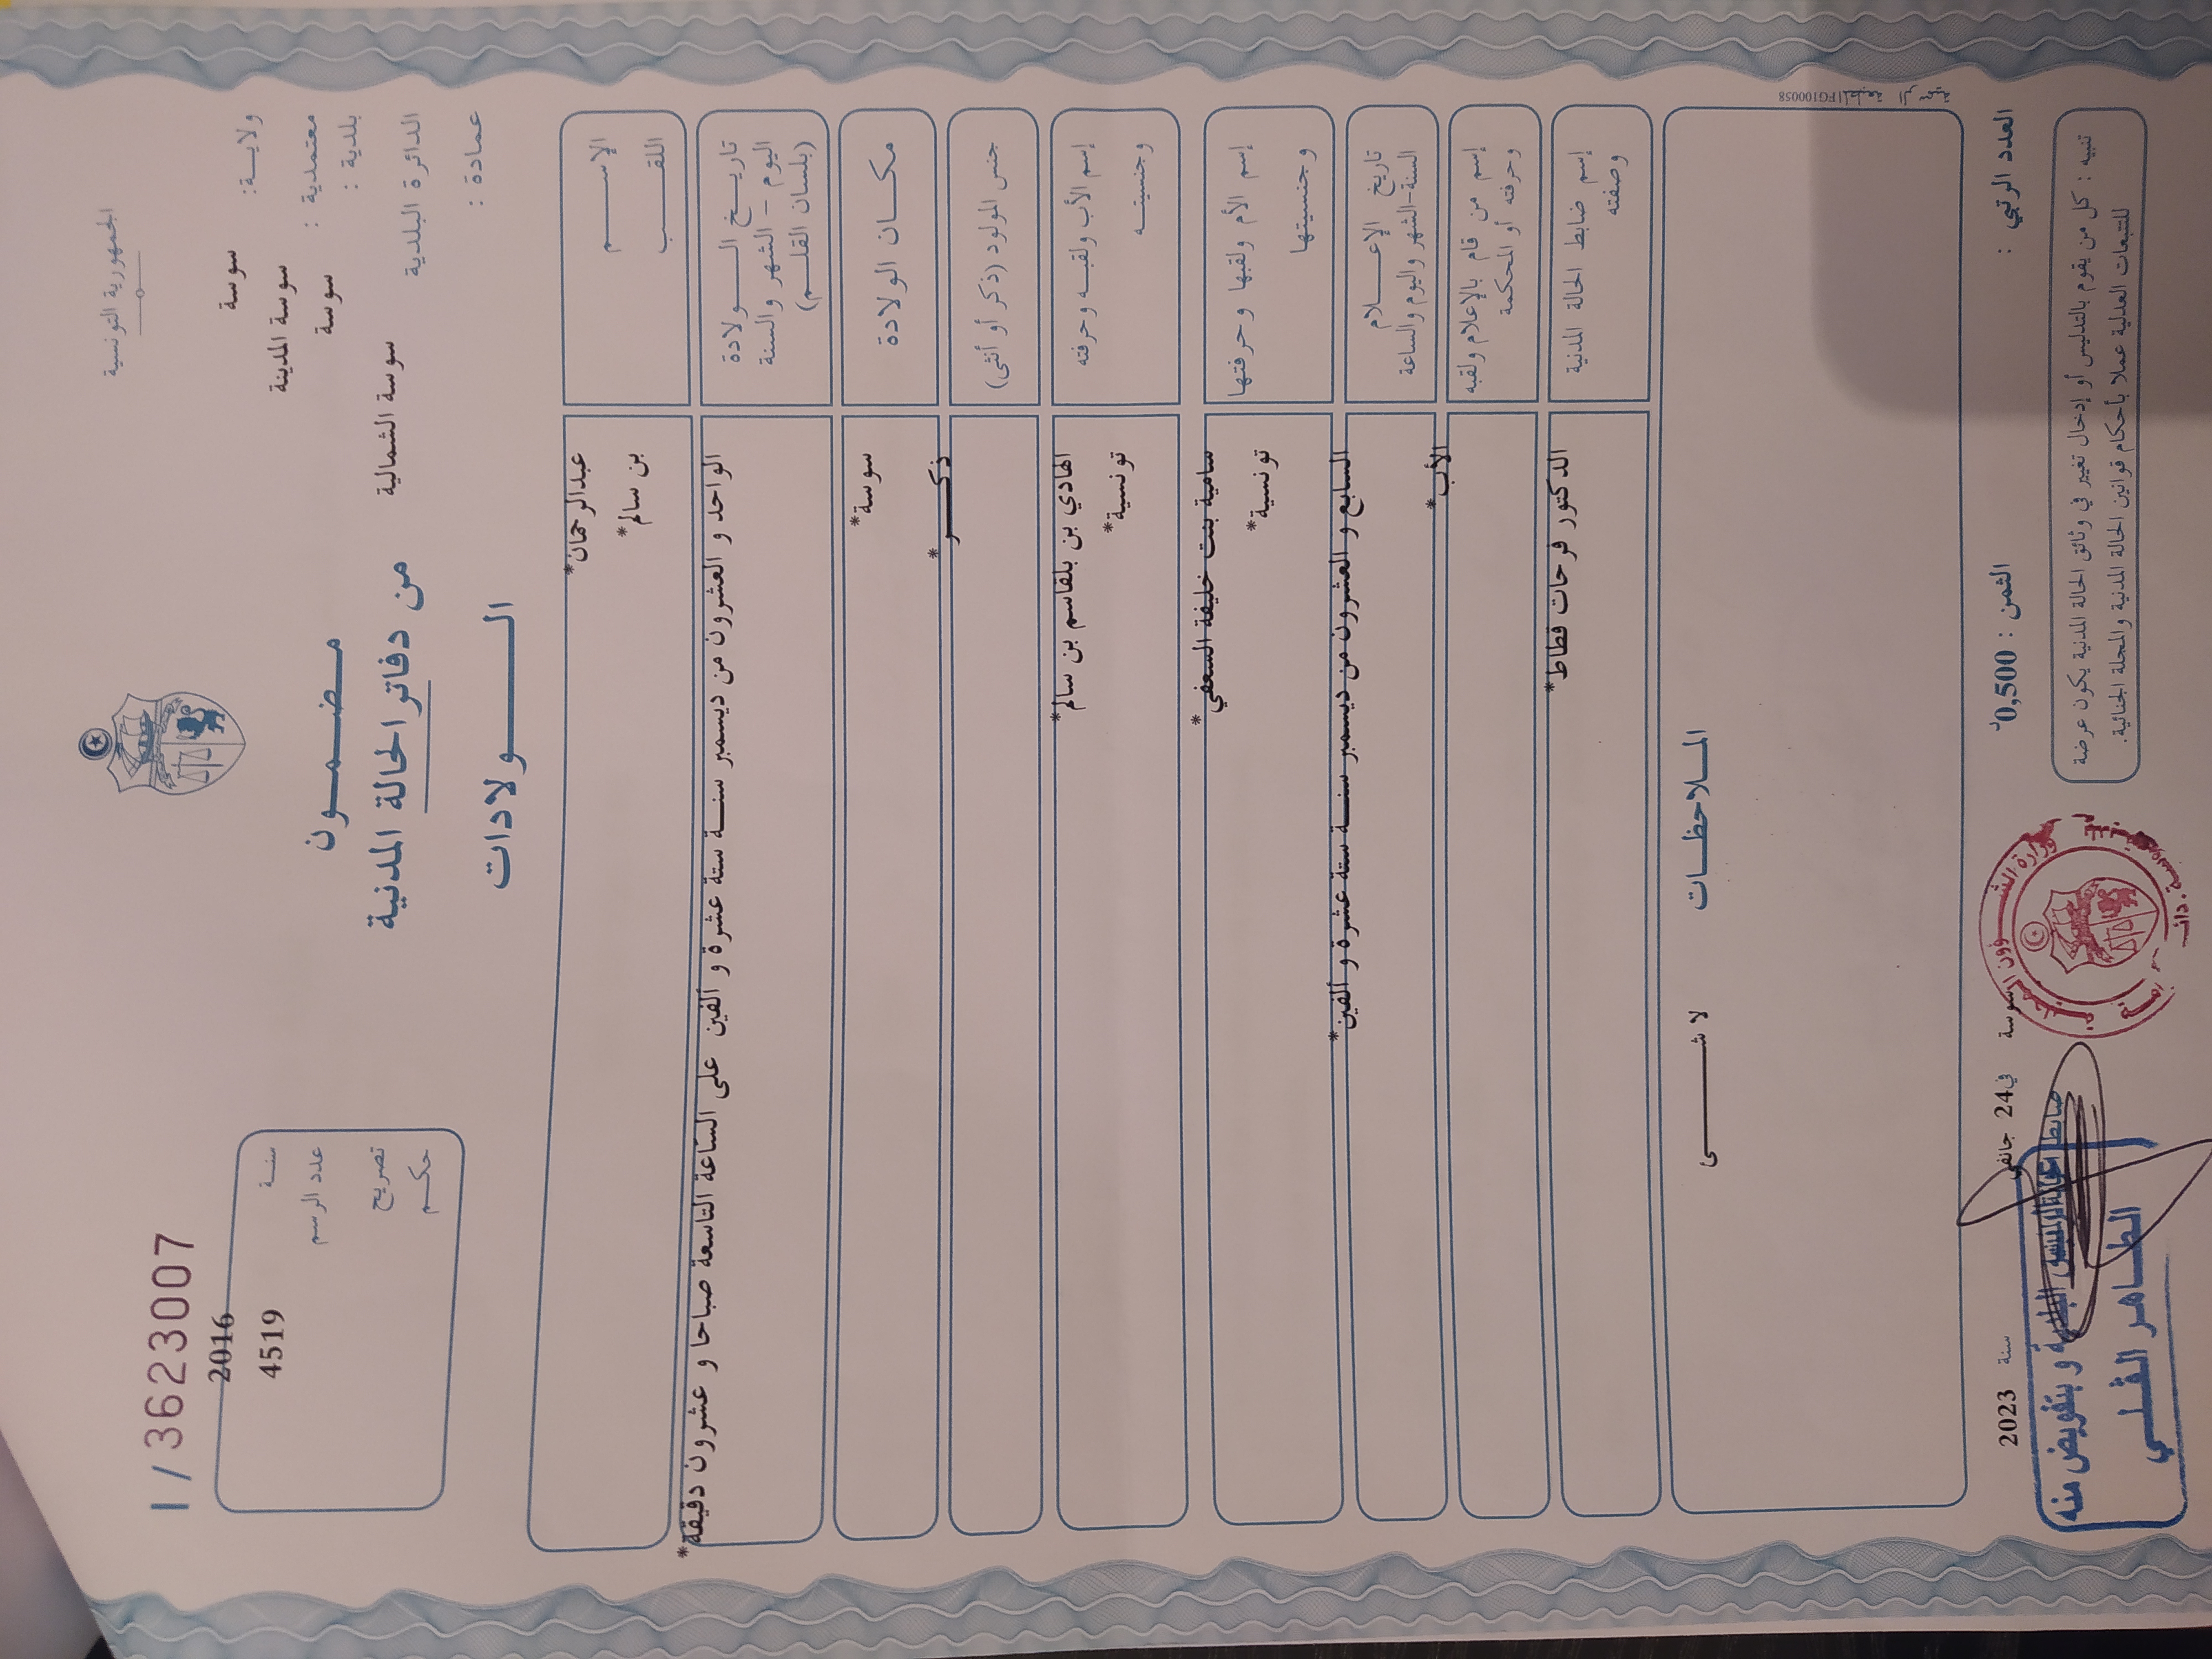 الجمهورية التونسية
I / 3623007
ولايـــة: سوسة
معتمدية : سوسة المدينة
بلدية : سوسة
الدائرة البلدية سوسة الشمالية
عمادة :
مضمــــون
من دفاتر الحالة المدنية
الـــــولادات
سنــة 2016
عدد الرسم 4519
تصريح
حكـم
الإســـــم عبدالرحمان*
اللقـــب بن سالم*
تاريــخ الــــولادة
اليوم – الشهر والسنة
(بلسان القلــم)
الواحد و العشرون من ديسمبر سنـــة ستة عشرة و ألفين على الساعة التاسعة صباحا و عشرون دقيقة*
مكــان الولادة سوسة*
جنس المولود (ذكر أو أنثى) ذكـــر*
إسم الأب ولقبــه وحرفته الهادي بن بلقاسم بن سالم*
وجنسيتــه تونسية*
إسم الأم ولقبها وحرفتها سامية بنت خليفة السعفي*
وجنسيتها تونسية*
تاريخ الإعـــلام
السنة-الشهر واليوم والساعة
السابع و العشرون من ديسمبر سنـــة ستة عشرة و ألفين*
إسم من قام بالإعلام ولقبه الأب*
وحرفته أو المحكمة
إسم ضابط الحالة المدنية الدكتور فرحات قطاط*
وصفته
الملاحظــات
لا شــــــئ
المطبعة الرسمية FG100058
العدد الرتبي :
الثمن : 0,500د
سوسة في 24 جانفي سنة 2023
تنبيه : كل من يقوم بالتدليس أو إدخال تغيير في وثائق الحالة المدنية يكون عرضة
للتتبعات العدلية عملا بأحكام قوانين الحالة المدنية والمجلة الجنائية.
وزارة الشـؤون
ضابط الحالة المدنية و بتفويض منه
الطـاهـر القـلـي